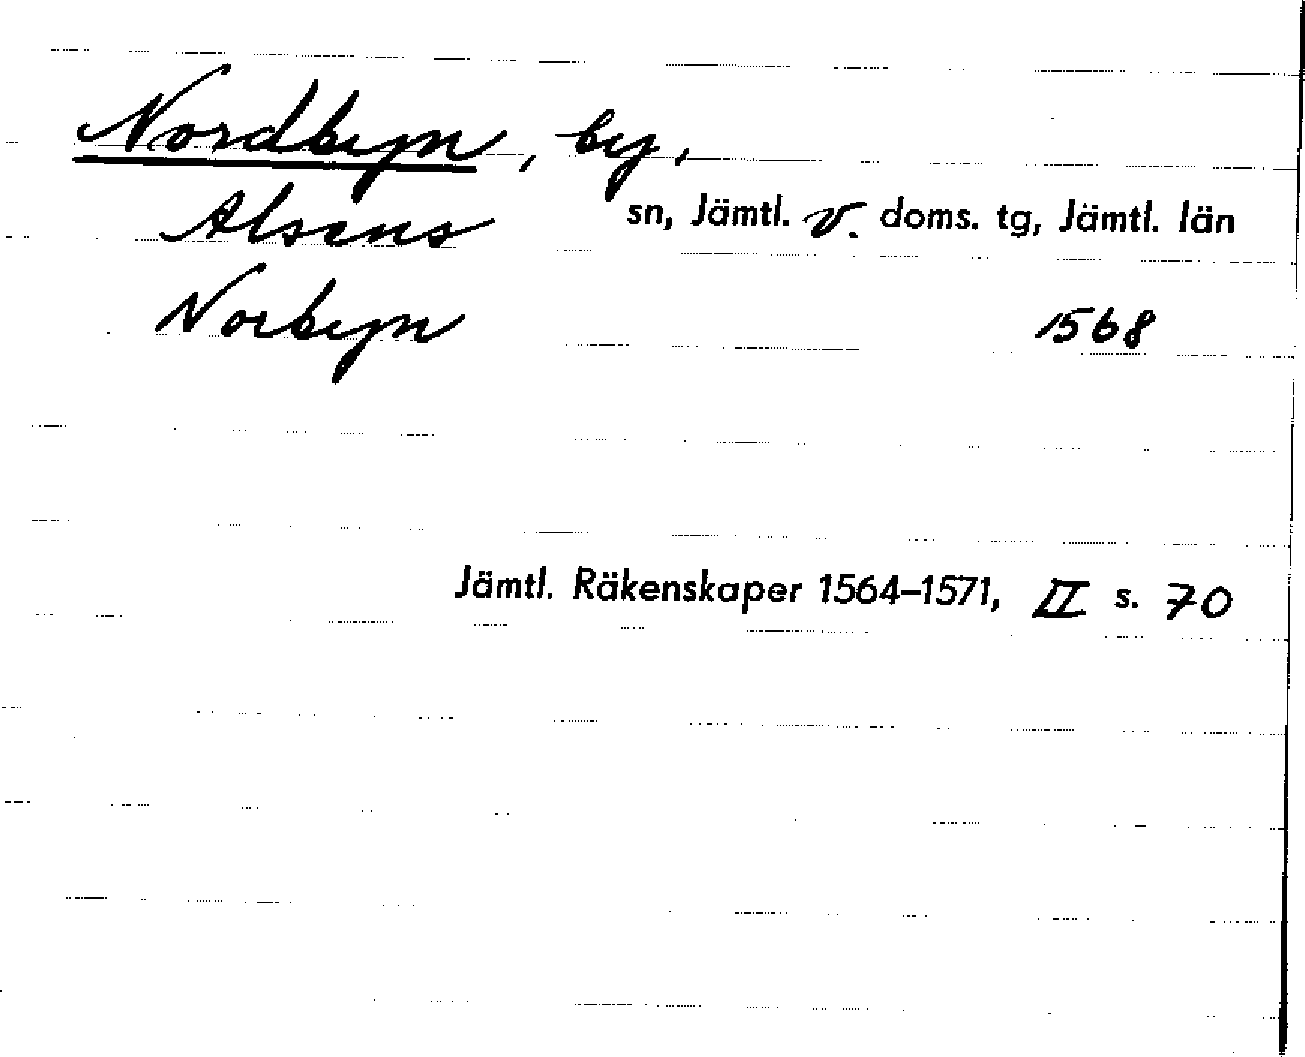 Nordbyn, by,
Alsens sn, Jämtl. v. doms. tg, Jämtl. län
Norbyn 1568
Jämtl. Räkenskaper 1564–1571, II s. 70